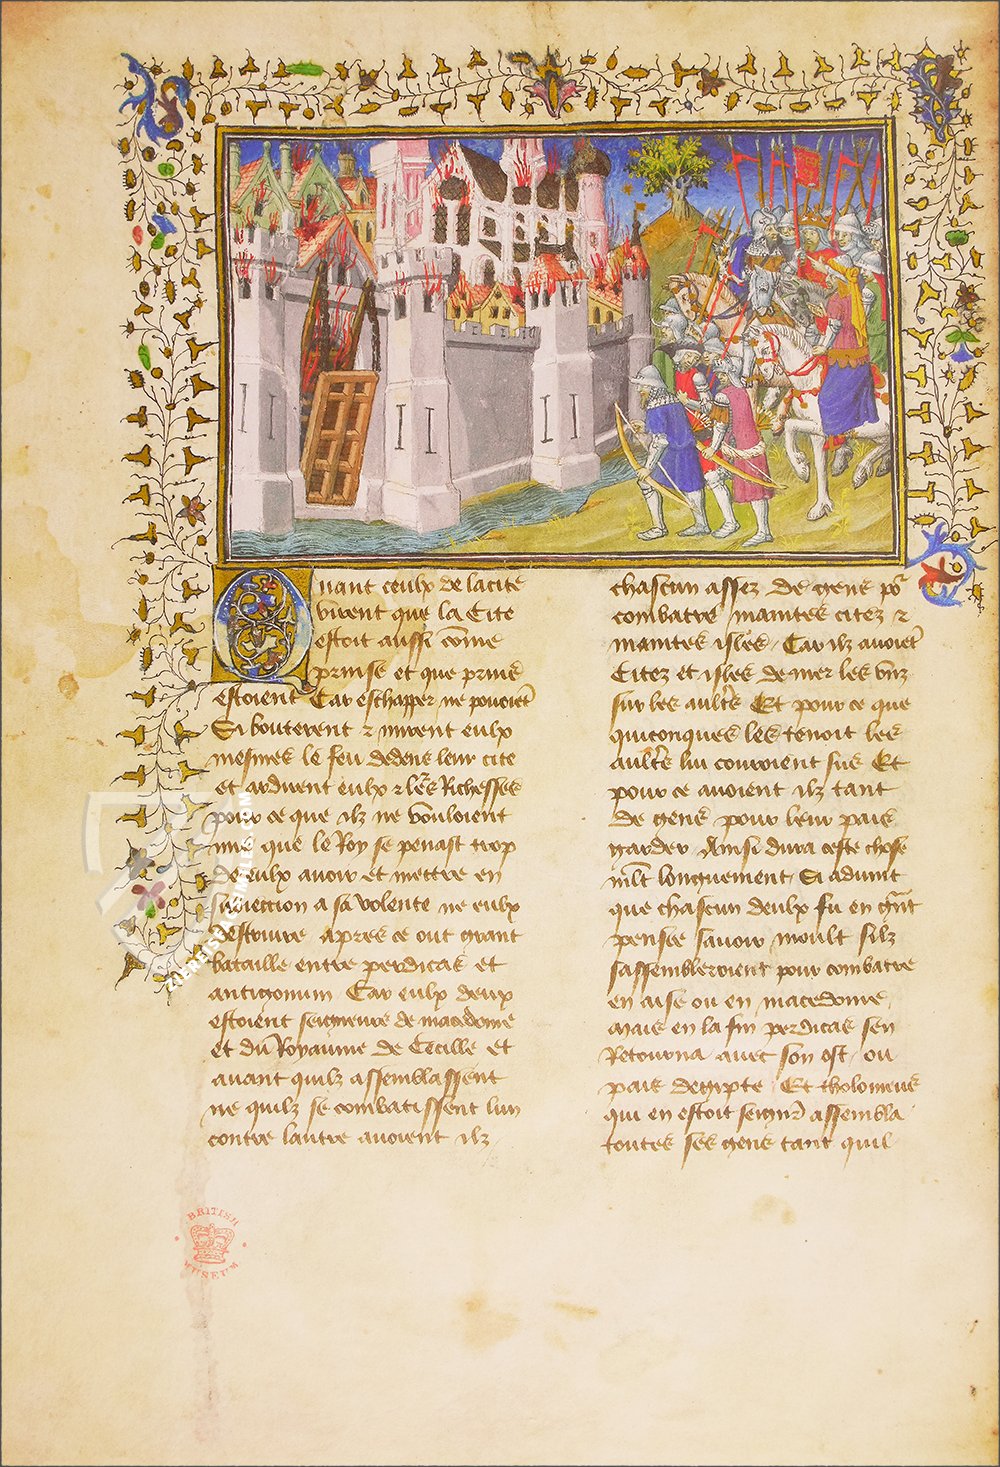 Quant ceulx de la cite
virent que la Cite
estoit aussi cõme
prinse et que prins
estoient Car eschapper ne pouoiẽt
Si bouterent & mirent eulx
mesmes le feu dedens leur cite
et ardirent eulx & leˢ Richesses
pour ce que ilz ne vouloient
mie que le Roy se penast trop
de eulx auoir et mettre en
subiection a sa volente ne eulx
destruire apres ce out grant
bataille entre perdicas et
antigonum Car eulx deux
estoient seigneurs de macedome
et du Royaume de Cecille et
auant quilz assemblassent
ne quilz se combatissent lun
contre lautre auoient ilz
chascun assez de gens poʳ
combatre maintes citez &
maintes isles Car ilz auoiẽt
Citez et isles de mer les vnz
sur les aultˢ Et pour ce que
quiconques les tenoit les
aultˢ lui couroient sus Et
pour ce auoient ilz tant
de gens pour leur pais
garder Ainsi dura ceste chose
mlt longuement Si aduint
que chascun deulx fu en gᵃnt
pensee sauoir moult silz
sassembleroient pour combatre
en aise ou en macedome
Mais en la fin perdicas sen
Retourna auec son ost ou
pais degipte Et tholomeus
qui en estoit seignʳ assembla
toutes ses gens tant quil
BRITISH
MUSEUM